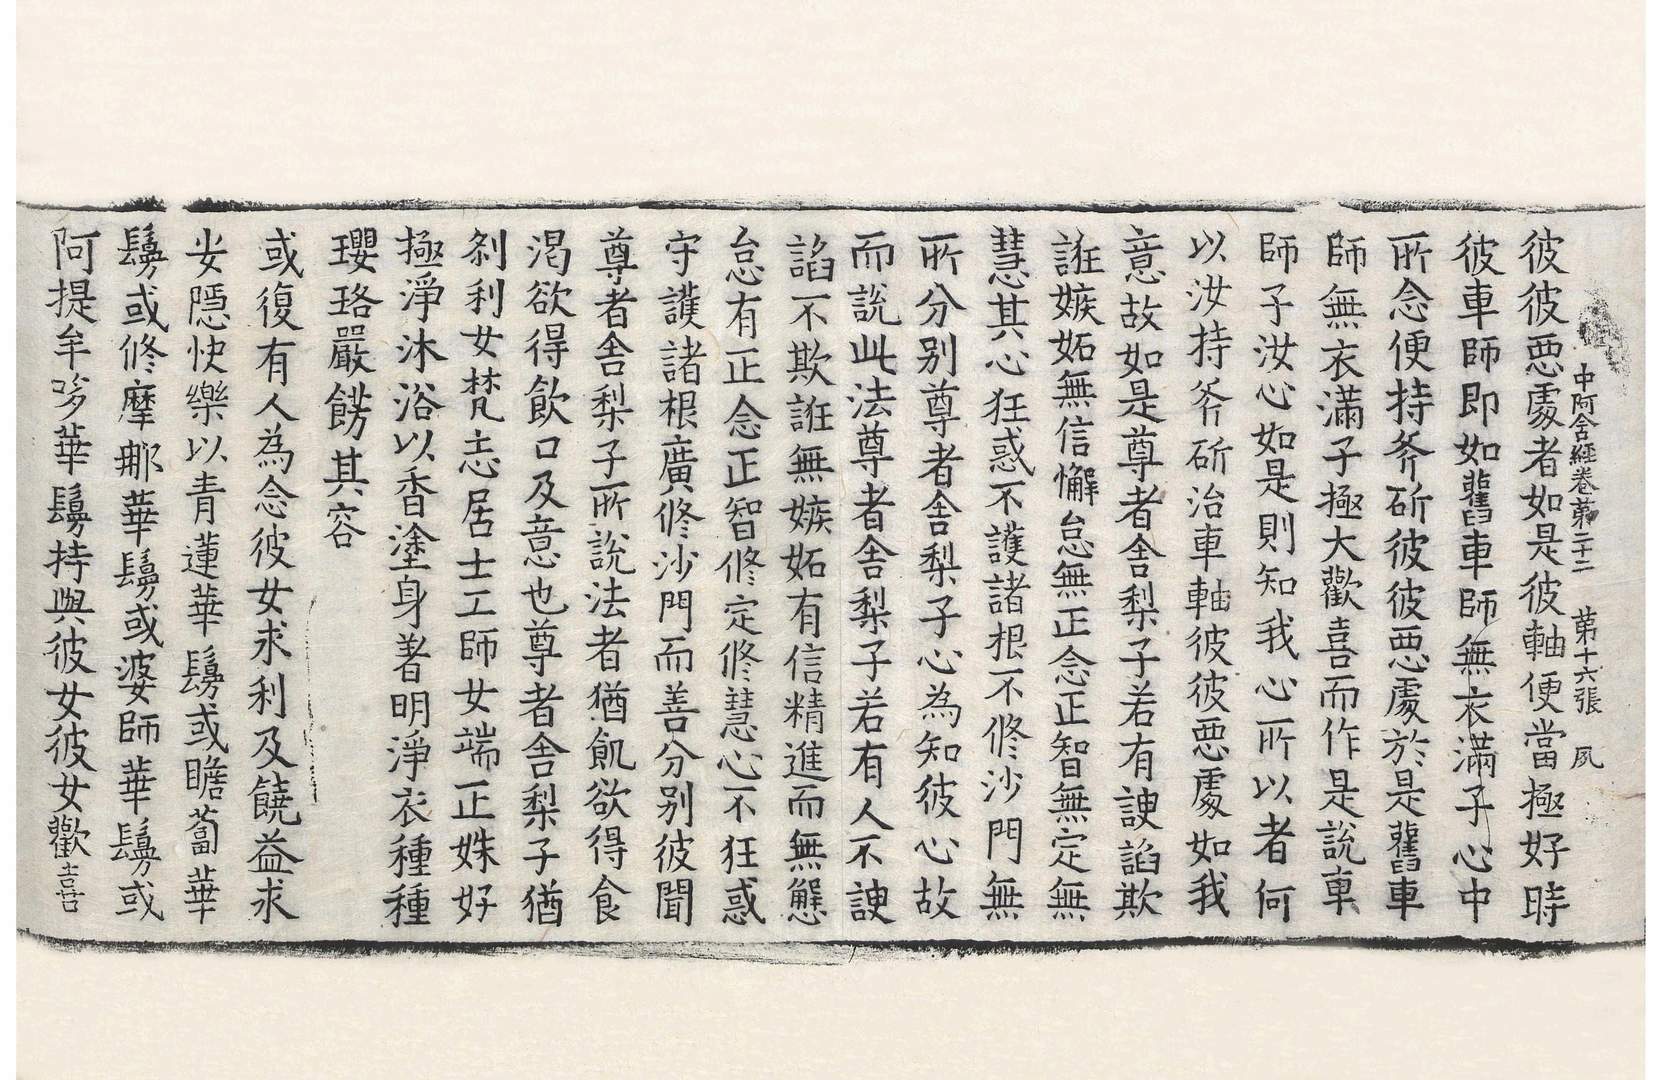 中阿含經卷第二十二　第十六張　夙
彼彼惡處者如是彼軸便當極好時
彼車師即如舊車師無衣滿子心中
所念便持斧斫彼彼惡處於是舊車
師無衣滿子極大歡喜而作是說車
師子汝心如是則知我心所以者何
以汝持斧斫治車軸彼彼惡處如我
意故如是尊者舍梨子若有諛諂欺
誑嫉妬無信懈怠無正念正智無定無
慧其心狂惑不護諸根不修沙門無
所分別尊者舍梨子心為知彼心故
而說此法尊者舍梨子若有人不諛
諂不欺誑無嫉妬有信精進而無懈
怠有正念正智修定修慧心不狂惑
守護諸根廣修沙門而善分別彼聞
尊者舍梨子所說法者猶飢欲得食
渴欲得飲口及意也尊者舍梨子猶
剎利女梵志居士工師女端正姝好
極淨沐浴以香塗身著明淨衣種種
瓔珞嚴餝其容
或復有人為念彼女求利及饒益求
安隱快樂以青蓮華鬘或瞻蔔華
鬘或修摩那華鬘或婆師華鬘或
阿提牟哆華鬘持與彼女彼女歡喜